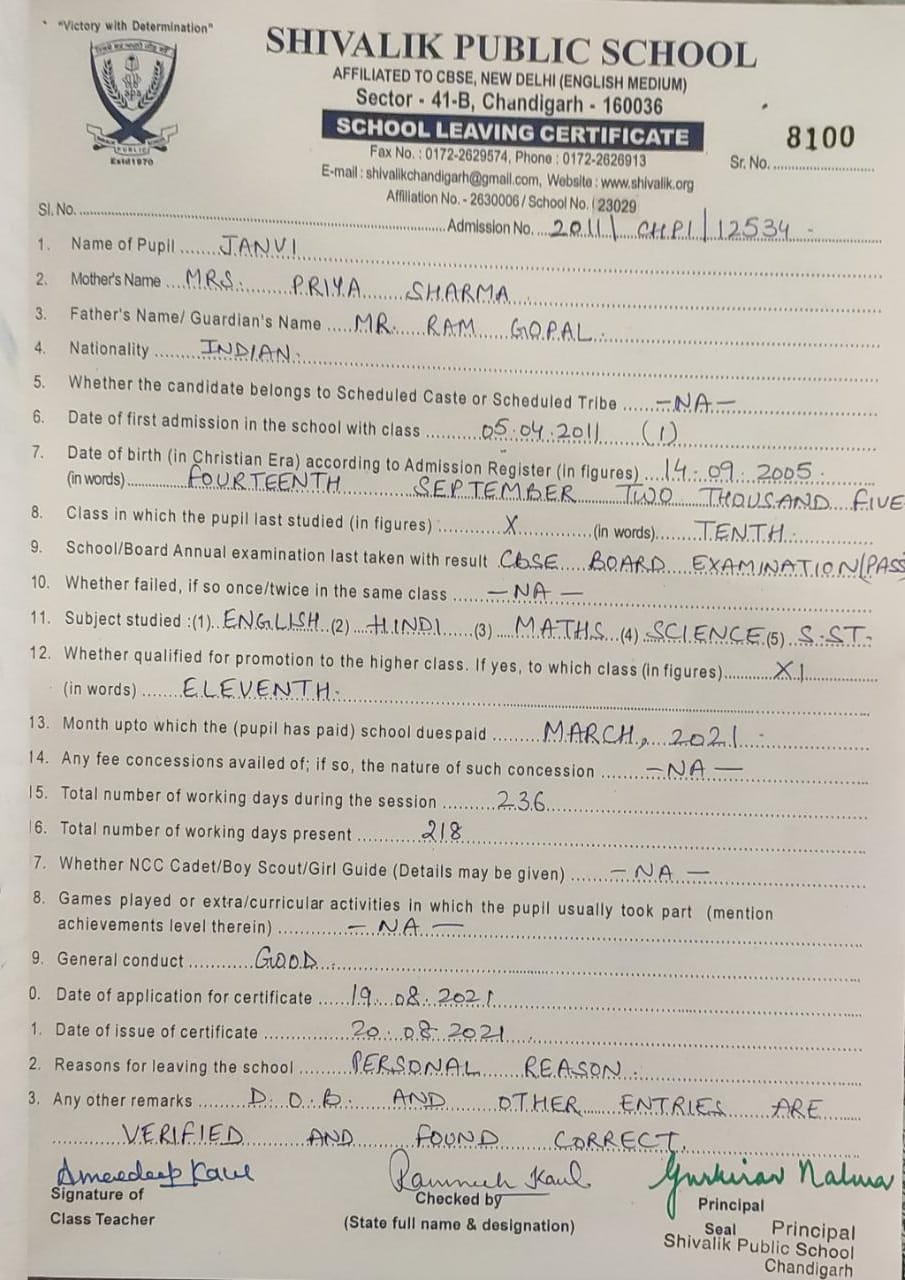 "Victory with Determination"
SHIVALIK PUBLIC SCHOOL
AFFILIATED TO CBSE, NEW DELHI (ENGLISH MEDIUM)
Sector - 41-B, Chandigarh - 160036
SCHOOL LEAVING CERTIFICATE
PUBLIC
Estd1970
Fax No. : 0172-2629574, Phone : 0172-2626913
Sr. No. 8100
E-mail : shivalikchandigarh@gmail.com, Website : www.shivalik.org
Affiliation No. - 2630006 / School No. | 23029
Sl. No. Admission No. 2011 | CHPI | 12534 -
1. Name of Pupil JANVI
2. Mother's Name MRS. PRIYA SHARMA
3. Father's Name/ Guardian's Name MR. RAM GOPAL.
4. Nationality INDIAN.
5. Whether the candidate belongs to Scheduled Caste or Scheduled Tribe -NA-
6. Date of first admission in the school with class 05.04.2011 (I)
7. Date of birth (in Christian Era) according to Admission Register (in figures) 14.09.2005.
(in words) FOURTEENTH SEPTEMBER TWO THOUSAND FIVE
8. Class in which the pupil last studied (in figures) X (in words) TENTH.
9. School/Board Annual examination last taken with result CBSE BOARD EXAMINATION(PASS)
10. Whether failed, if so once/twice in the same class -NA-
11. Subject studied :(1) ENGLISH (2) HINDI (3) MATHS (4) SCIENCE (5) S.ST.
12. Whether qualified for promotion to the higher class. If yes, to which class (in figures) XI
(in words) ELEVENTH.
13. Month upto which the (pupil has paid) school duespaid MARCH, 2021 -
14. Any fee concessions availed of; if so, the nature of such concession -NA-
15. Total number of working days during the session 236
16. Total number of working days present 218
7. Whether NCC Cadet/Boy Scout/Girl Guide (Details may be given) -NA-
8. Games played or extra/curricular activities in which the pupil usually took part (mention
achievements level therein) -NA-
9. General conduct GOOD.
0. Date of application for certificate 19.08.2021
1. Date of issue of certificate 20.08.2021
2. Reasons for leaving the school PERSONAL REASON.
3. Any other remarks D.O.B. AND OTHER ENTRIES ARE
VERIFIED AND FOUND CORRECT.
Kaur Kaul
Signature of Checked by Principal
Class Teacher (State full name & designation) Seal Principal
Shivalik Public School
Chandigarh